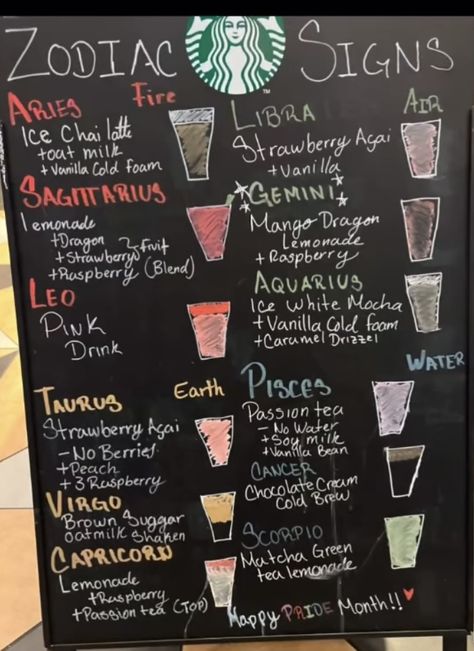 ZODIAC SIGNS
ARIES Fire
Ice Chai latte
+ oat milk
+ Vanilla Cold foam
SAGITTARIUS
lemonade
+Dragon
+Strawberry } fruit
+Raspberry (Blend)
LEO
PINK
Drink
Earth
TAURUS
Strawberry Açai
- No Berries
+ Peach
+ 3 Raspberry
VIRGO
Brown Suggar
Oatmilk Shaken
CAPRICORN
Lemonade
+Raspberry
+Passion tea (Top)
LIBRA AIR
Strawberry Açai
+ Vanilla
GEMINI
Mango Dragon
Lemonade
+ Raspberry
AQUARIUS
Ice White Mocha
+ Vanilla Cold foam
+ Caramel Drizzel
WATER
PISCES
Passion tea
- No Water
+ Soy milk
+ Vanilla Bean
CANCER
Chocolate Cream
Cold Brew
SCORPIO
Matcha Green
tea lemonade
Happy PRIDE Month!!